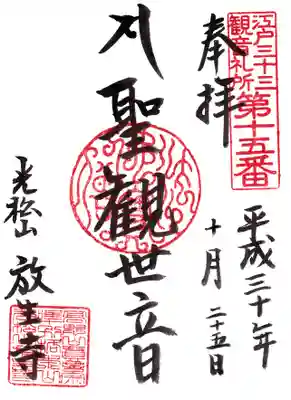 江戸三十三
観音札所
第十五番
奉拝
平成三十年
十月二十五日
聖観世音
光松山
放生寺